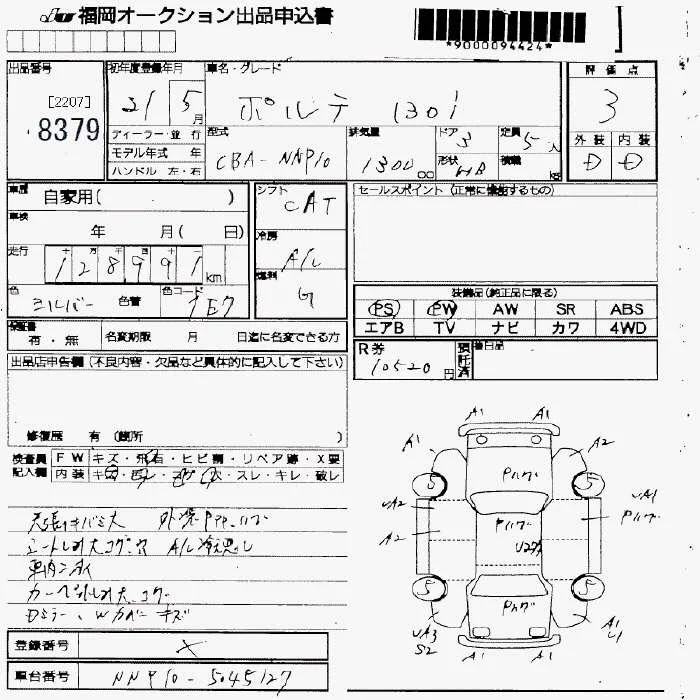 JU 福岡オークション出品申込書
*9000094424*
出品番号 [2207] 8379
初年度登録年月 21 5月
車名・グレード ポルテ 130i
評価点 3
外装 D 内装 D
ディーラー・並行
モデル年式 年
ハンドル 左・右
型式 CBA-NNP10
排気量 1300 cc
ドア 3
形状 HB
定員 5人
積載 kg
車歴 自家用( )
車検 年 月( 日)
走行 128991 km
色 シルバー 色替 色コード 1E7
シフト CAT
冷房 A/C
燃料 G
セールスポイント(正常に機能するもの)
装備品(純正品に限る)
PS PW AW SR ABS
エアB TV ナビ カワ 4WD
保証書 有・無 名変期限 月 日迄に名変できる方
R券 10520円 預託済 備白品
出品店申告欄(不良内容・欠品など具体的に記入して下さい)
修復歴 有(箇所 )
検査員 FW キズ・飛石・ヒビ割・リペア跡・X要
記入欄 内装 キズ・スレ・キレ・破レ
天張キバミ大
シートしみ大コゲ穴
カーペットしみ大、コゲ
Dミラー、Wカバーキズ
A1 A1
A1 A2
Pハゲ
5 5
UA2 UA1
Pハゲ
Pハゲ
A2 A2
U2
5 5
Pハゲ
UA3 S2
A1 U1
A1 A1
登録番号 X
車台番号 NNP10-5045127